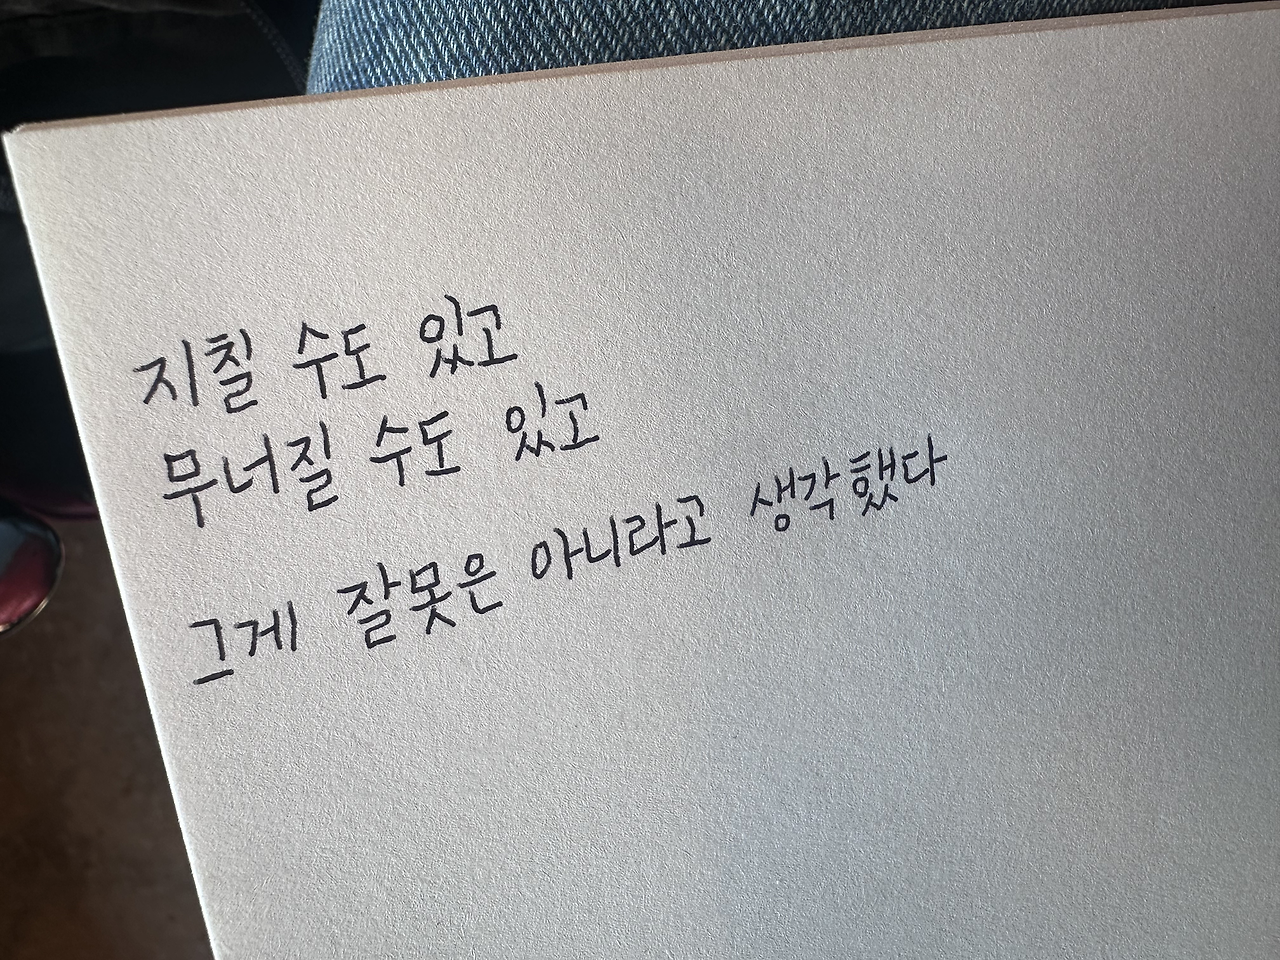 지칠 수도 있고
무너질 수도 있고
그게 잘못은 아니라고 생각했다